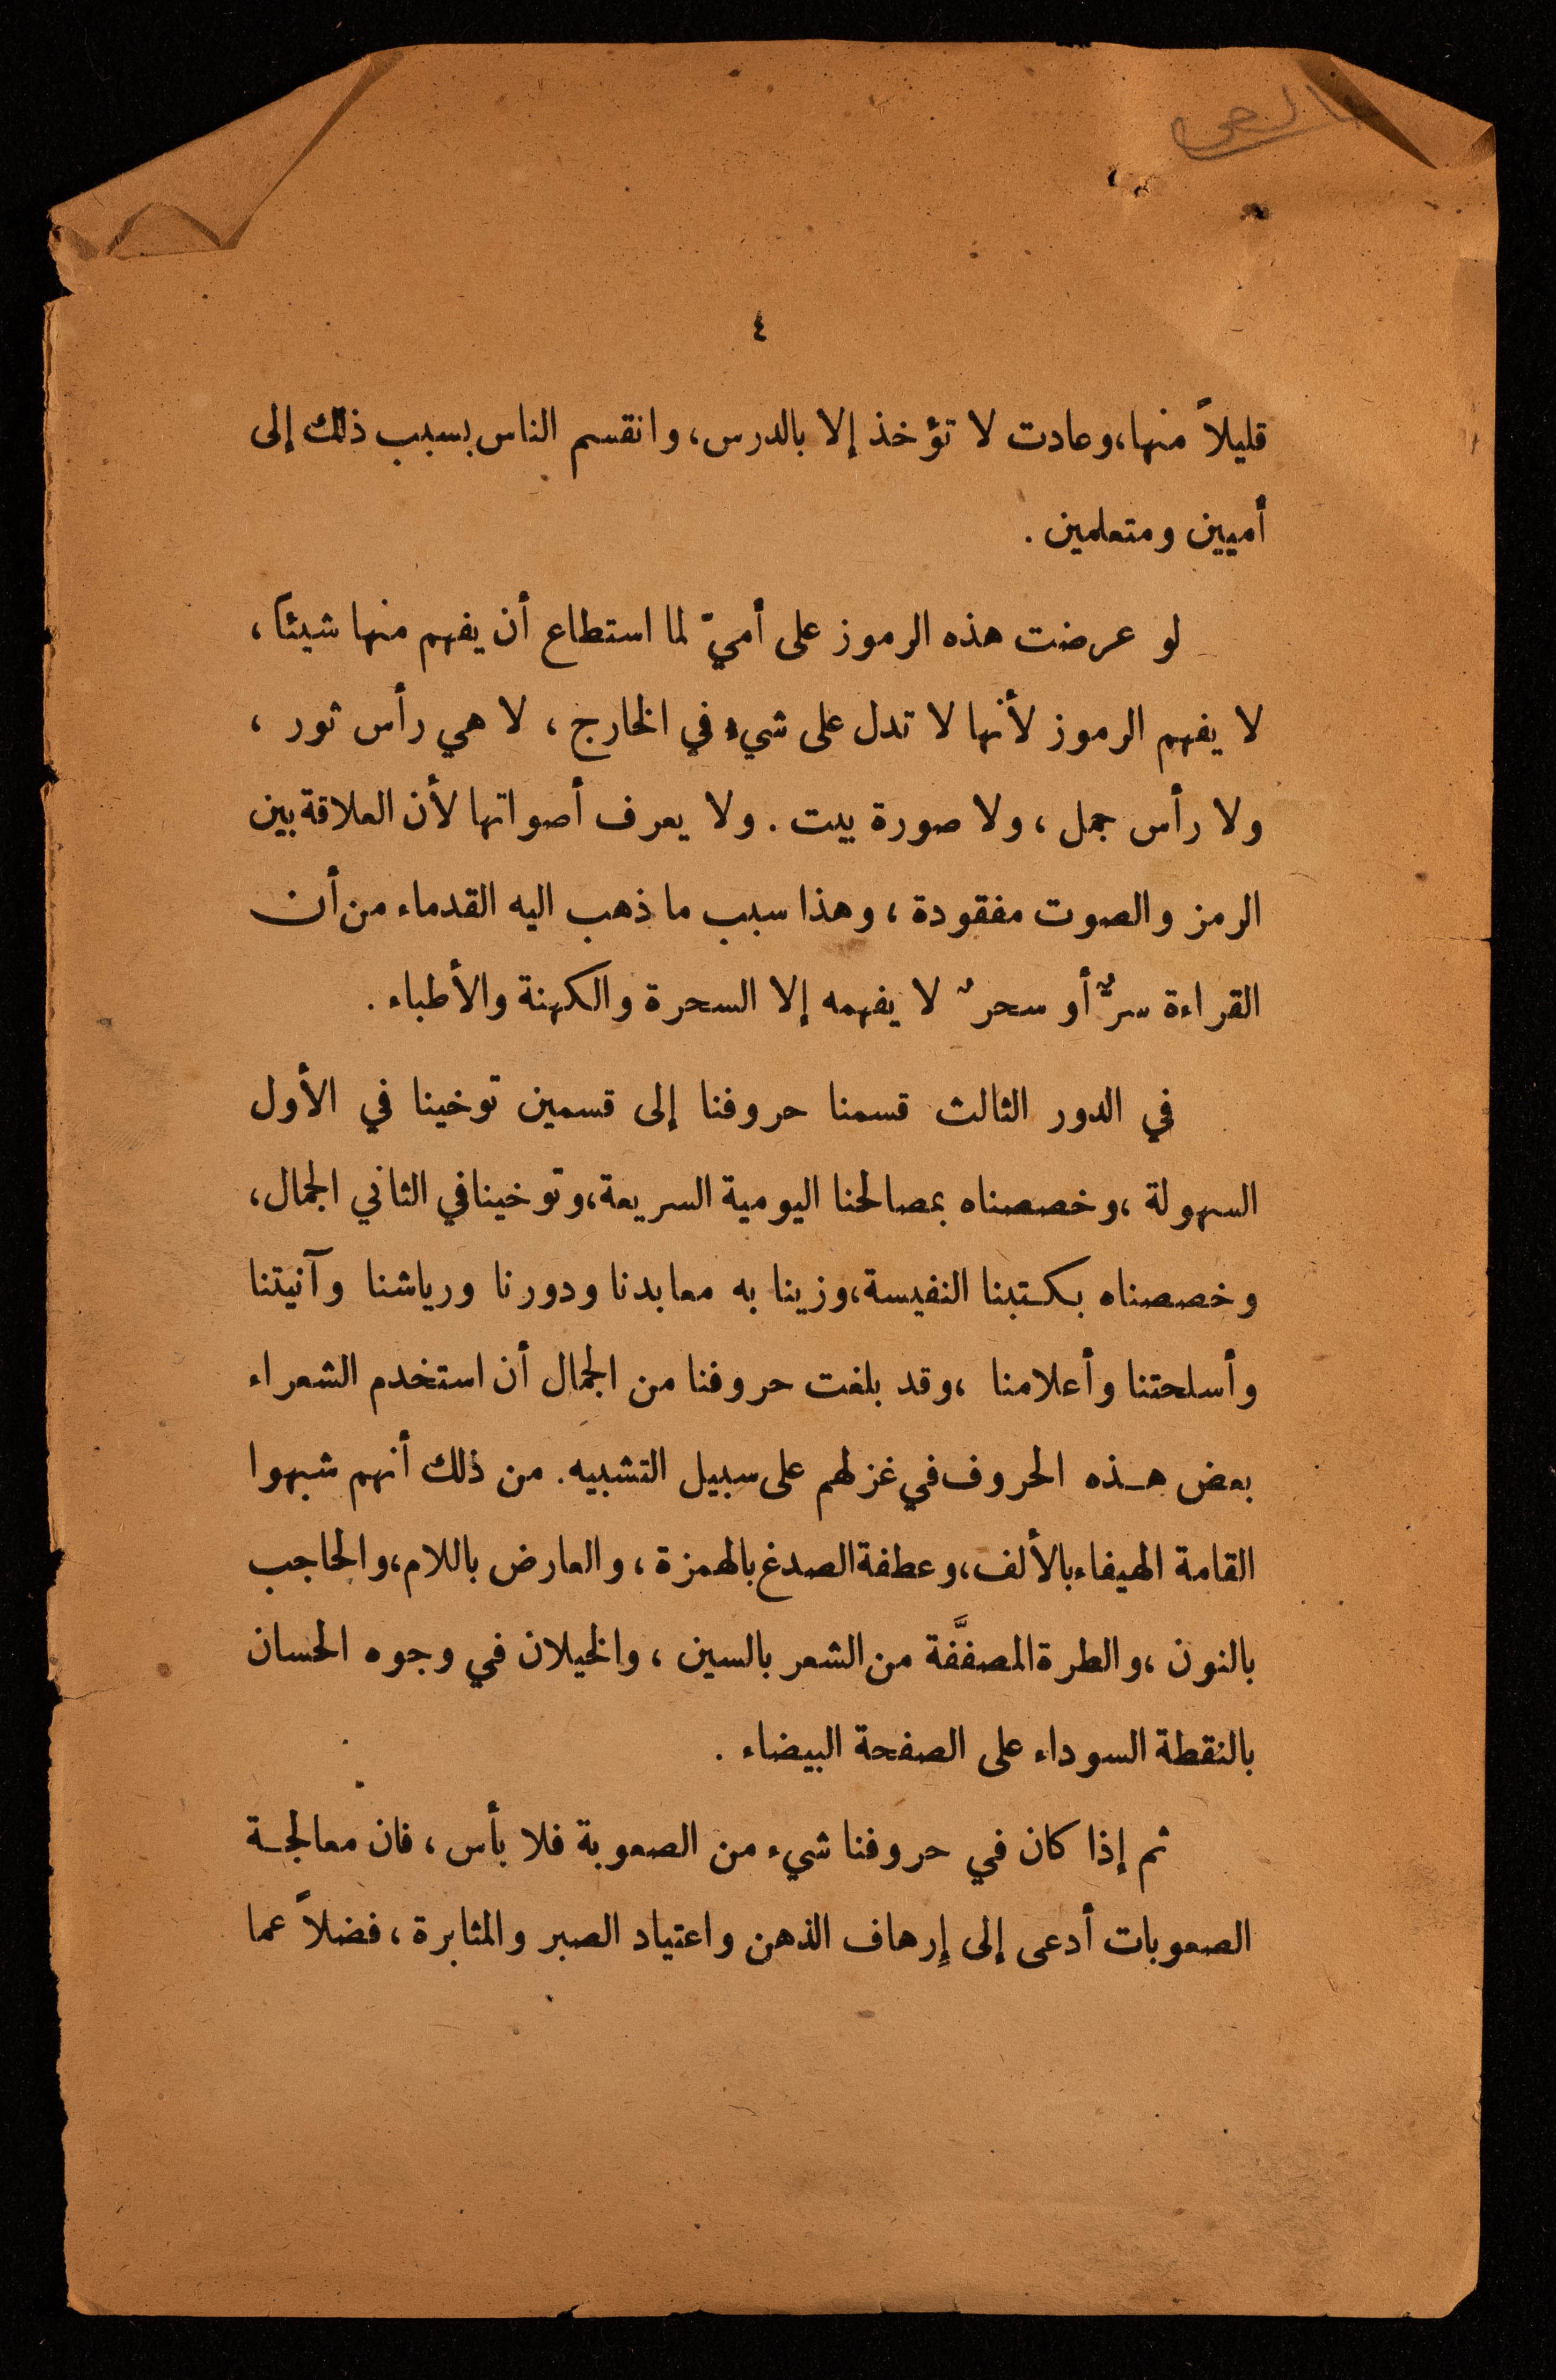 ٤
قليلاً منها، وعادت لا تؤخذ إلا بالدرس، وانقسم الناس بسبب ذلك إلى
أميين ومتعلمين .
لو عرضت هذه الرموز على أميّ لما استطاع أن يفهم منها شيئاً ،
لا يفهم الرموز لأنها لا تدل على شيء في الخارج ، لا هي رأس ثور ،
ولا رأس جمل ، ولا صورة بيت . ولا يعرف أصواتها لأن العلاقة بين
الرمز والصوت مفقودة ، وهذا سبب ما ذهب اليه القدماء من أن
القراءة سرٌّ أو سحرٌ لا يفهمه إلا السحرة والكهنة والأطباء .
في الدور الثالث قسمنا حروفنا إلى قسمين توخينا في الأول
السهولة ، وخصصناه بمصالحنا اليومية السريعة، وتوخينا في الثاني الجمال،
وخصصناه بكتبنا النفيسة، وزينا به معابدنا ودورنا ورياشنا وآنيتنا
وأسلحتنا وأعلامنا ، وقد بلغت حروفنا من الجمال أن استخدم الشعراء
بعض هذه الحروف في غزلهم على سبيل التشبيه . من ذلك أنهم شبهوا
القامة الهيفاء بالألف، وعطفة الصدغ بالهمزة ، والعارض باللام، والحاجب
بالنون ، والطرة المصففَّة من الشعر بالسين ، والخيلان في وجوه الحسان
بالنقطة السوداء على الصفحة البيضاء .
ثم إذا كان في حروفنا شيء من الصعوبة فلا بأس ، فان معالجة
الصعوبات أدعى إلى إرهاف الذهن واعتياد الصبر والمثابرة ، فضلاً عما